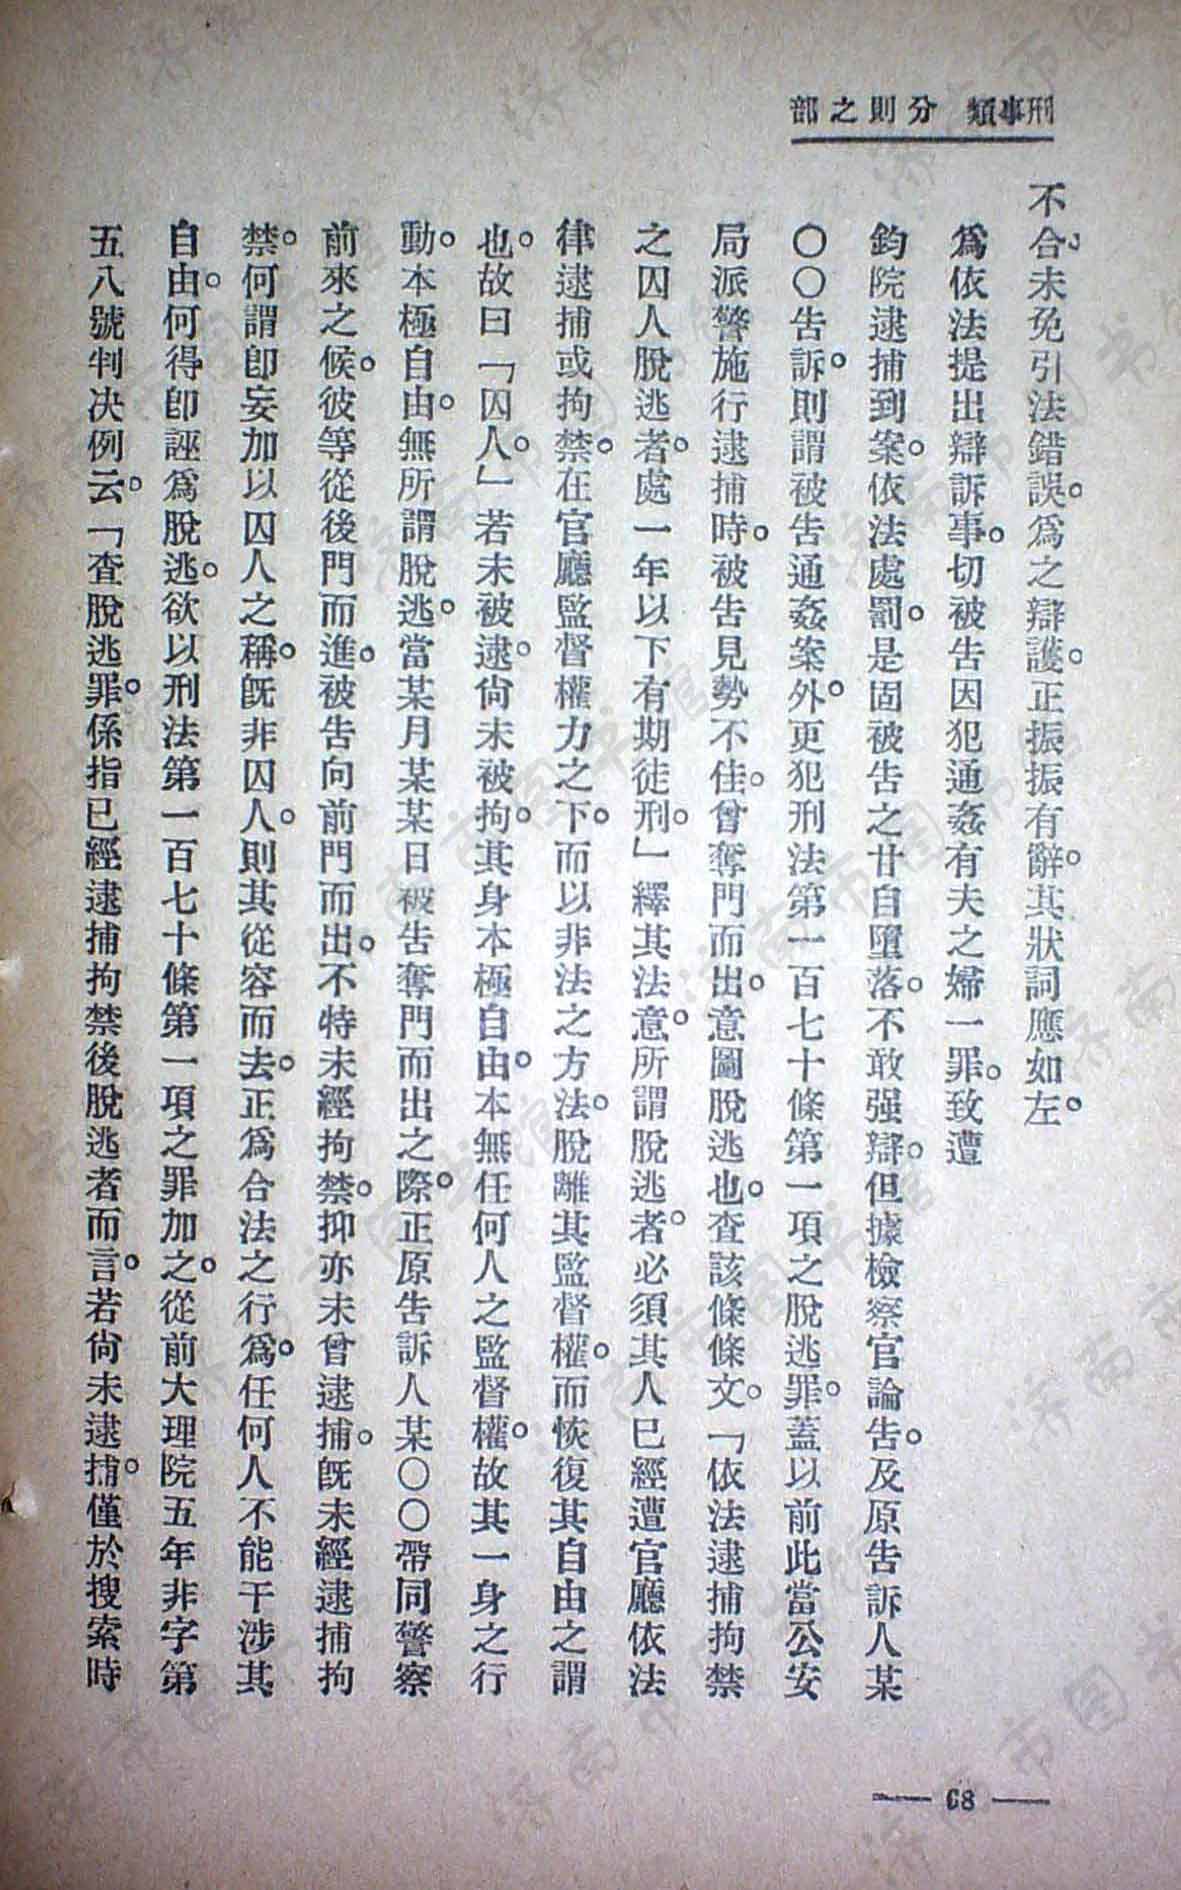 刑事類　分則之部
不合。未免引法錯誤。爲之辯護。正振振有辭。其狀詞應如左。
爲依法提出辯訴事。切被告因犯通姦有夫之婦一罪。致遭
鈞院逮捕到案。依法處罰。是固被告之甘自墮落。不敢强辯。但據檢察官論告。及原告訴人某
〇〇告訴。則謂被告通姦案外。更犯刑法第一百七十條第一項之脫逃罪。蓋以前此當公安
局派警施行逮捕時。被告見勢不佳。曾奪門而出。意圖脫逃也。查該條條文。「依法逮捕拘禁
之囚人脫逃者。處一年以下有期徒刑。」繹其法意。所謂脫逃者。必須其人已經遭官廳依法
律逮捕或拘禁。在官廳監督權力之下。而以非法之方法。脫離其監督權。而恢復其自由之謂
也。故曰「囚人。」若未被逮。尙未被拘。其身本極自由。本無任何人之監督權。故其一身之行
動。本極自由。無所謂脫逃。當某月某某日被告奪門而出之際。正原告訴人某〇〇帶同警察
前來之候。彼等從後門而進。被告向前門而出。不特未經拘禁。抑亦未曾逮捕。旣未經逮捕拘
禁。何謂卽妄加以囚人之稱。旣非囚人。則其從容而去。正爲合法之行爲。任何人不能干涉其
自由。何得卽誣爲脫逃。欲以刑法第一百七十條第一項之罪加之。從前大理院五年非字第
五八號判决例云。「查脫逃罪。係指已經逮捕拘禁後脫逃者而言。若尙未逮捕。僅於搜索時
— 68 —
济南市图书馆